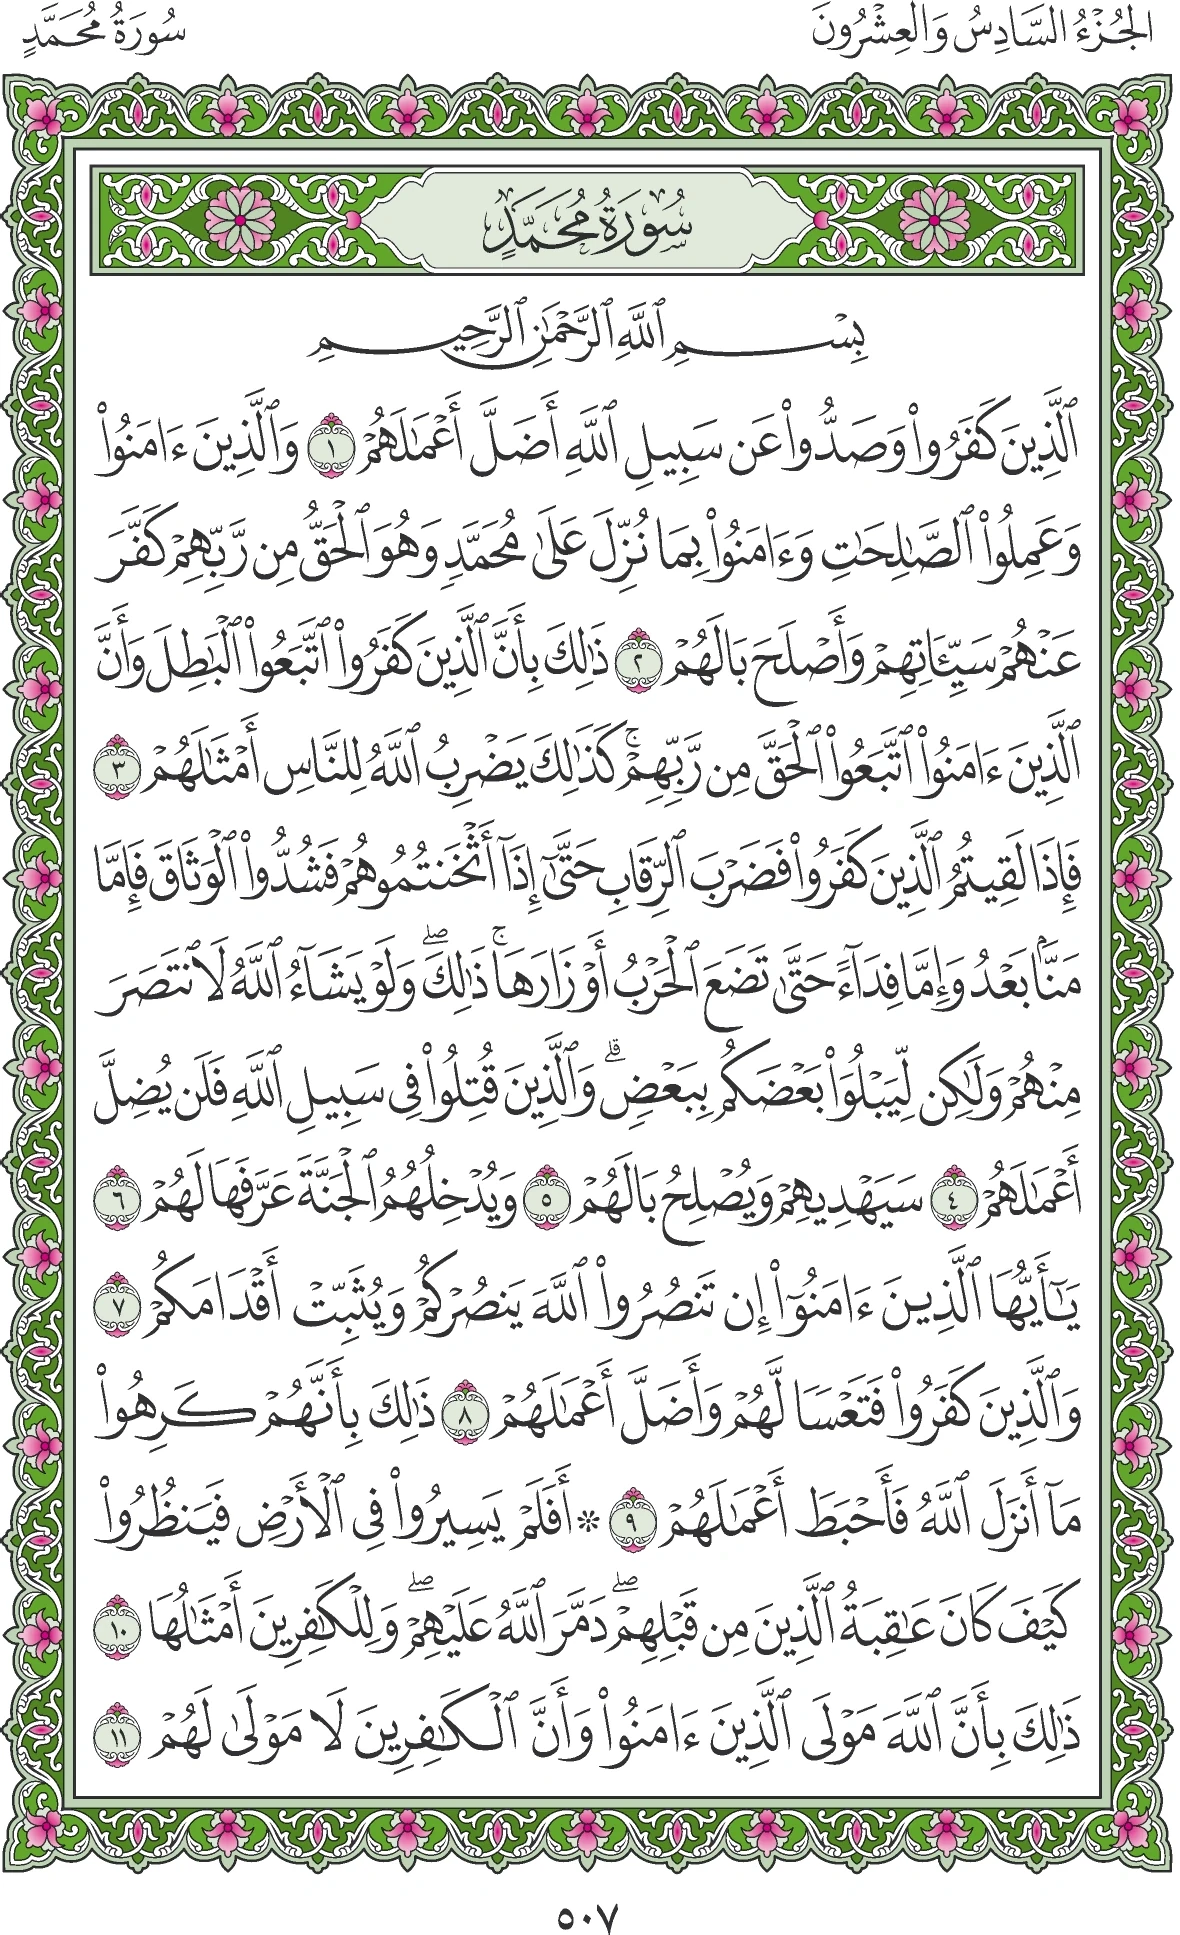 الجُزْءُ السَّادِسُ وَالْعِشْرُونَ
سُورَةُ مُحَمَّدٍ
سُورَةُ مُحَمَّدٍ
بِسْمِ ٱللَّهِ ٱلرَّحْمَٰنِ ٱلرَّحِيمِ
ٱلَّذِينَ كَفَرُوا۟ وَصَدُّوا۟ عَن سَبِيلِ ٱللَّهِ أَضَلَّ أَعْمَٰلَهُمْ ١ وَٱلَّذِينَ ءَامَنُوا۟
وَعَمِلُوا۟ ٱلصَّٰلِحَٰتِ وَءَامَنُوا۟ بِمَا نُزِّلَ عَلَىٰ مُحَمَّدٍ وَهُوَ ٱلْحَقُّ مِن رَّبِّهِمْ كَفَّرَ
عَنْهُمْ سَيِّـَٔاتِهِمْ وَأَصْلَحَ بَالَهُمْ ٢ ذَٰلِكَ بِأَنَّ ٱلَّذِينَ كَفَرُوا۟ ٱتَّبَعُوا۟ ٱلْبَٰطِلَ وَأَنَّ
ٱلَّذِينَ ءَامَنُوا۟ ٱتَّبَعُوا۟ ٱلْحَقَّ مِن رَّبِّهِمْ ۚ كَذَٰلِكَ يَضْرِبُ ٱللَّهُ لِلنَّاسِ أَمْثَٰلَهُمْ ٣
فَإِذَا لَقِيتُمُ ٱلَّذِينَ كَفَرُوا۟ فَضَرْبَ ٱلرِّقَابِ حَتَّىٰٓ إِذَآ أَثْخَنتُمُوهُمْ فَشُدُّوا۟ ٱلْوَثَاقَ فَإِمَّا
مَنًّۢا بَعْدُ وَإِمَّا فِدَآءً حَتَّىٰ تَضَعَ ٱلْحَرْبُ أَوْزَارَهَا ۚ ذَٰلِكَ ۖ وَلَوْ يَشَآءُ ٱللَّهُ لَٱنتَصَرَ
مِنْهُمْ وَلَٰكِن لِّيَبْلُوَا۟ بَعْضَكُم بِبَعْضٍ ۗ وَٱلَّذِينَ قُتِلُوا۟ فِى سَبِيلِ ٱللَّهِ فَلَن يُضِلَّ
أَعْمَٰلَهُمْ ٤ سَيَهْدِيهِمْ وَيُصْلِحُ بَالَهُمْ ٥ وَيُدْخِلُهُمُ ٱلْجَنَّةَ عَرَّفَهَا لَهُمْ ٦
يَٰٓأَيُّهَا ٱلَّذِينَ ءَامَنُوٓا۟ إِن تَنصُرُوا۟ ٱللَّهَ يَنصُرْكُمْ وَيُثَبِّتْ أَقْدَامَكُمْ ٧
وَٱلَّذِينَ كَفَرُوا۟ فَتَعْسًا لَّهُمْ وَأَضَلَّ أَعْمَٰلَهُمْ ٨ ذَٰلِكَ بِأَنَّهُمْ كَرِهُوا۟
مَآ أَنزَلَ ٱللَّهُ فَأَحْبَطَ أَعْمَٰلَهُمْ ٩ ۞ أَفَلَمْ يَسِيرُوا۟ فِى ٱلْأَرْضِ فَيَنظُرُوا۟
كَيْفَ كَانَ عَٰقِبَةُ ٱلَّذِينَ مِن قَبْلِهِمْ ۖ دَمَّرَ ٱللَّهُ عَلَيْهِمْ ۖ وَلِلْكَٰفِرِينَ أَمْثَٰلُهَا ١٠
ذَٰلِكَ بِأَنَّ ٱللَّهَ مَوْلَى ٱلَّذِينَ ءَامَنُوا۟ وَأَنَّ ٱلْكَٰفِرِينَ لَا مَوْلَىٰ لَهُمْ ١١
٥٠٧